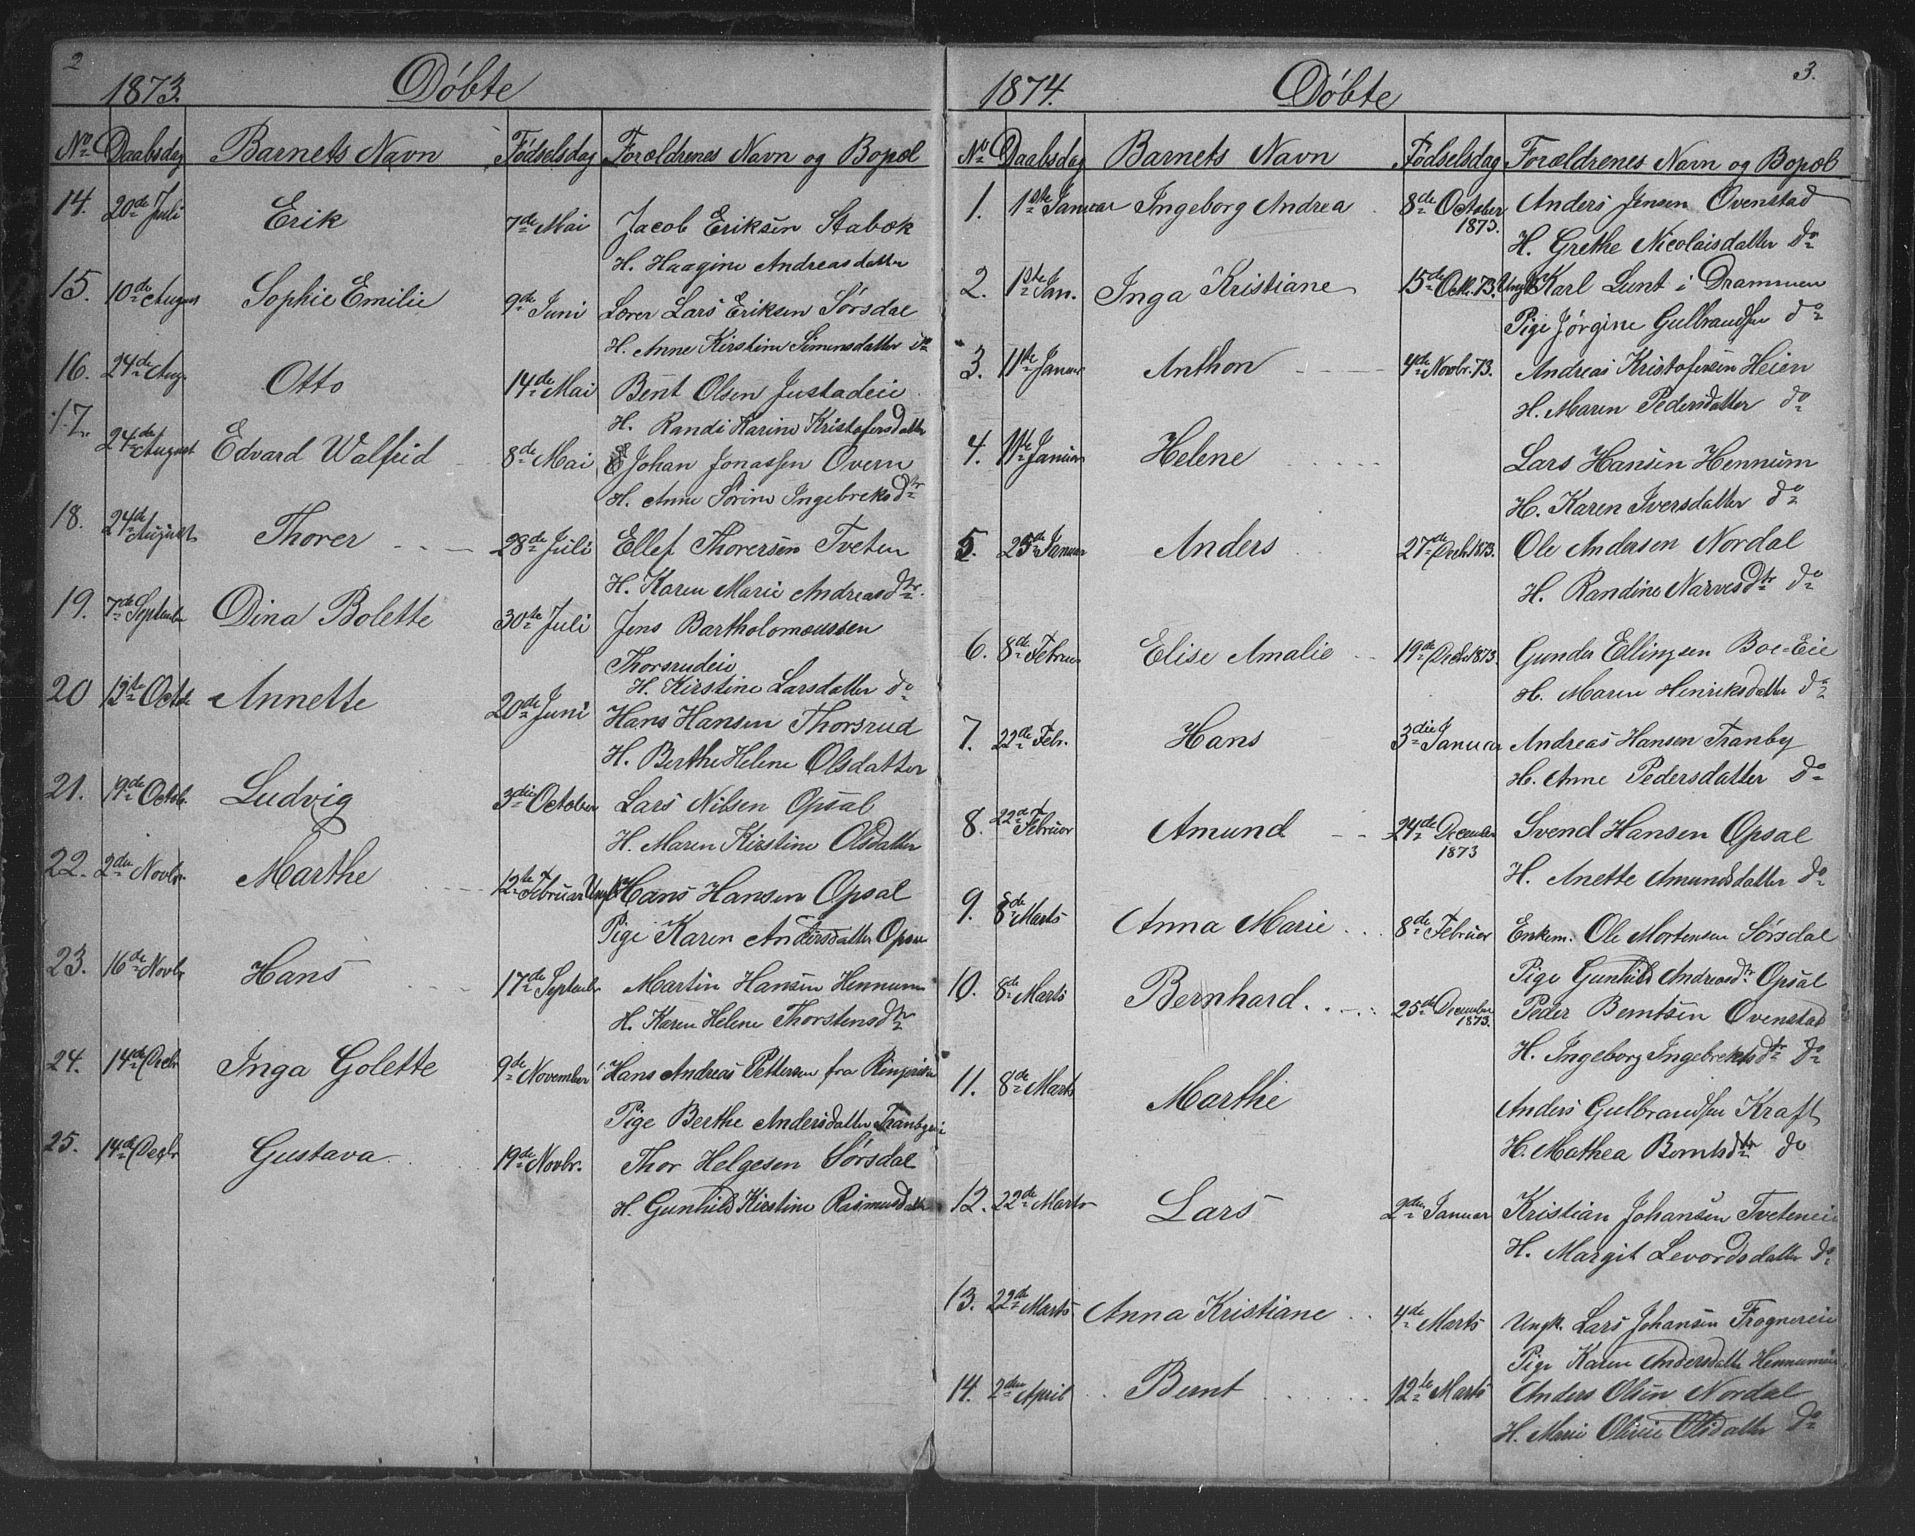 2
1873. Döbte
No Daabsdag Barnets Navn Födselsdag Forældrenes Navn og Bopæl
14. 20de Juli Erik 7de Mai Jacob Eriksen Stabæk
H. Haagine Andreasdatter
15. 10de August Sophie Emilie 9de Juni Lærer Lars Eriksen Sørsdal
H. Anne Kirstine Simensdatter do
16. 24de Aug. Otto 14de Mai Bent Olsen Justadeie
H. Randi Karine Kristofersdatter
17. 24de August Edvard Walfrid 8de Mai Johan Jonassen Overn
H. Anne Sørine Ingebreksdtr
18. 24de August Thorer 28de Juli Ellef Thorersen Tveten
H. Karen Marie Andreasdtr.
19. 7de September Dina Bolette 30te Juli Jens Bartholomæussen
Thorsrudeie
H. Kirstine Larsdatter do
20 12te Octb Annette 20de Juni Hans Hansen Thorsrud
H. Berthe Helene Olsdatter
21. 19de Octb. Ludvig 3die October Lars Nilsen Opsal
H. Maren Kirstine Olsdatter
22. 2den Novbr. Marthe 12te Februar Ungk. Hans Hansen Opsal
Pige Karen Andersdatter Opsal
23. 16de Novbr Hans 17de Septembr. Martin Hansen Hennum
H. Karen Helene Thorstensdtr
24. 14de Decbr Inga Golette 9de November Hans Andreas Pettersen fra Ringerike
Pige Berthe Andersdatter Tranbyeie
25. 14de Decbr Gustava 19de Novbr. Thor Helgesen Sørsdal
H. Gunhild Kirstine Rasmusdatter
3.
1874. Döbte
No Daabsdag Barnets Navn Födselsdag Forældrenes Navn og Bopæl
1. 1ste Januar Ingeborg Andrea 8de October 1873. Anders Jensen Ovenstad
H. Grethe Nicolaisdatter do
2. 1ste Jan. Inga Kristiane 15de Octb. 73. Ungk. Karl Lunt i Drammen
Pige Jørgine Gulbrandsen do
3. 11te Januar Anthon 4de Novbr. 73. Andreas Kristofersen Heien
H. Maren Pedersdatter do
4. 11te Januar Helene Lars Hansen Hennum
H. Karen Iversdatter do
5. 25de Januar Anders 27de Decb. 1873. Ole Andersen Nordal
H. Randine Narvesdtr do
6. 8de Februar Elise Amalie 19de Decb. 1873. Gunder Ellingsen Boe-Eie
H. Maren Henriksdatter do
7. 22de Febr. Hans 3die Januar Andreas Hansen Tranby
H. Anne Pedersdatter do
8. 22de Februar Amund 24de December 1873 Svend Hansen Opsal
H. Anette Amundsdatter do
9. 8de Marts Anna Marie 8de Februar Enkem. Ole Mortensen Sørsdal
Pige Gunhild Andreasdtr Opsal
10. 8de Marts Bernhard 25de December 1873. Peder Berntsen Ovenstad
H. Ingeborg Ingebrektsdtr do
11. 8de Marts Marthe Anders Gulbrandsen Kraft
H. Mathea Berntsdtr do
12. 22de Marts Lars 2den Januar Kristian Johansen Tveteneie
H. Margit Levordsdatter do
13. 22de Marts Anna Kristiane 4de Marts Ungk. Lars Johansen Frognereie
Pige Karen Andersdatter Hennumeie
14. 2den April Bernt 12te Marts Anders Olsen Nordal
H. Marie Olivie Olsdatter do